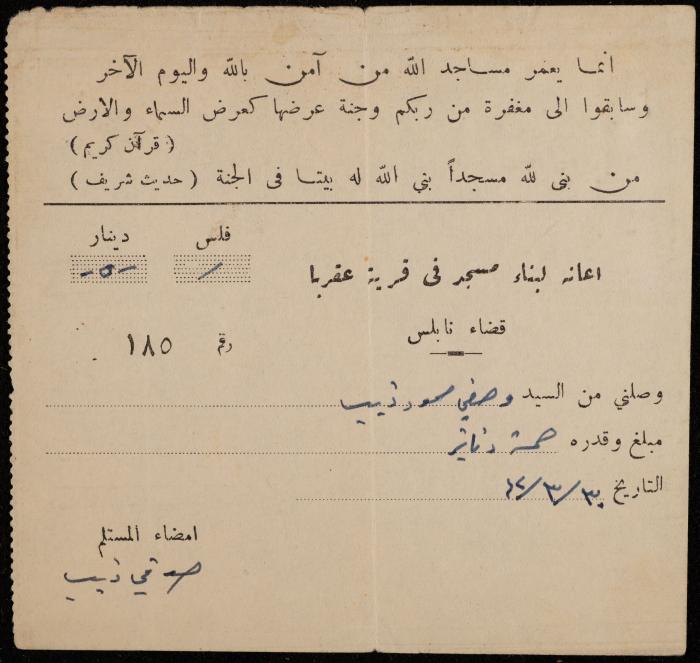 انما يعمر مساجد الله من آمن بالله واليوم الآخر
وسابقوا الى مغفرة من ربكم وجنة عرضها كعرض السماء والارض
(قرآن كريم)
من بنى لله مسجداً بني الله له بيتا فى الجنة (حديث شريف)
فلس دينار
/ -٥-
اعانه لبناء مسجد فى قرية عقربا
قضاء نابلس
رقم ١٨٥
وصلني من السيد وصفي محمود ذيب
مبلغ وقدره خمسة دنانير
التاريخ ٣٠/٣/٦٢
امضاء المستلم
صدقي ذيب